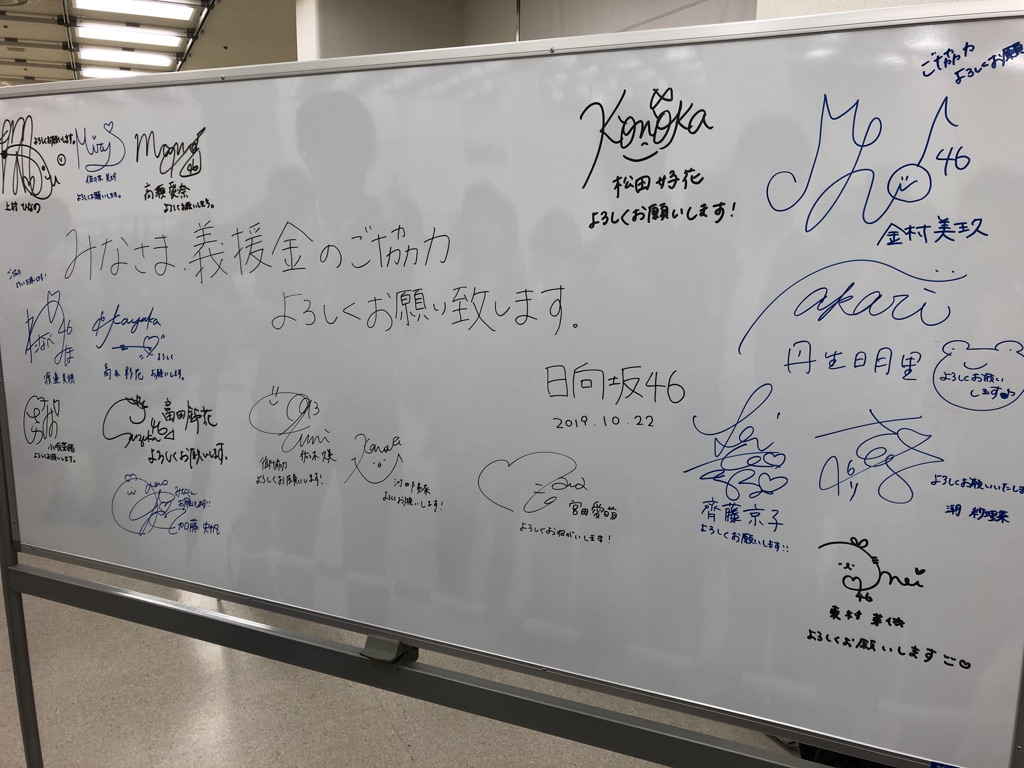 よろしくお願いします。
上村 ひなの
Mirei
佐々木 美玲
よろしくお願いします。
mana
46
高瀬 愛奈
よろしくお願いします。
Konoka
松田 好花
よろしくお願いします!
ご協力
よろしくお願い
46
金村 美玖
みなさま、義援金のご協力
よろしくお願い致します。
ご協力
よろしくお願いします!
46
渡邉 美穂
kayaka
よろしく
高本 彩花 お願いします。
akari
丹生 明里
よろしくお願い
します
日向坂46
2019.10.22
小坂菜緒
よろしくお願いします。
46
富田 鈴花
よろしくお願いします。
Kumi
佐々木 久美
御協力
よろしくお願いします!
河田 陽菜
よろしくお願いします!
みなさん
お願いします!!
加藤 史帆
宮田 愛萌
よろしくおねがいします!
齊藤 京子
よろしくお願いします!!
46
よろしくお願いいたします
潮 紗理菜
mei
46
東村 芽依
よろしくお願いします